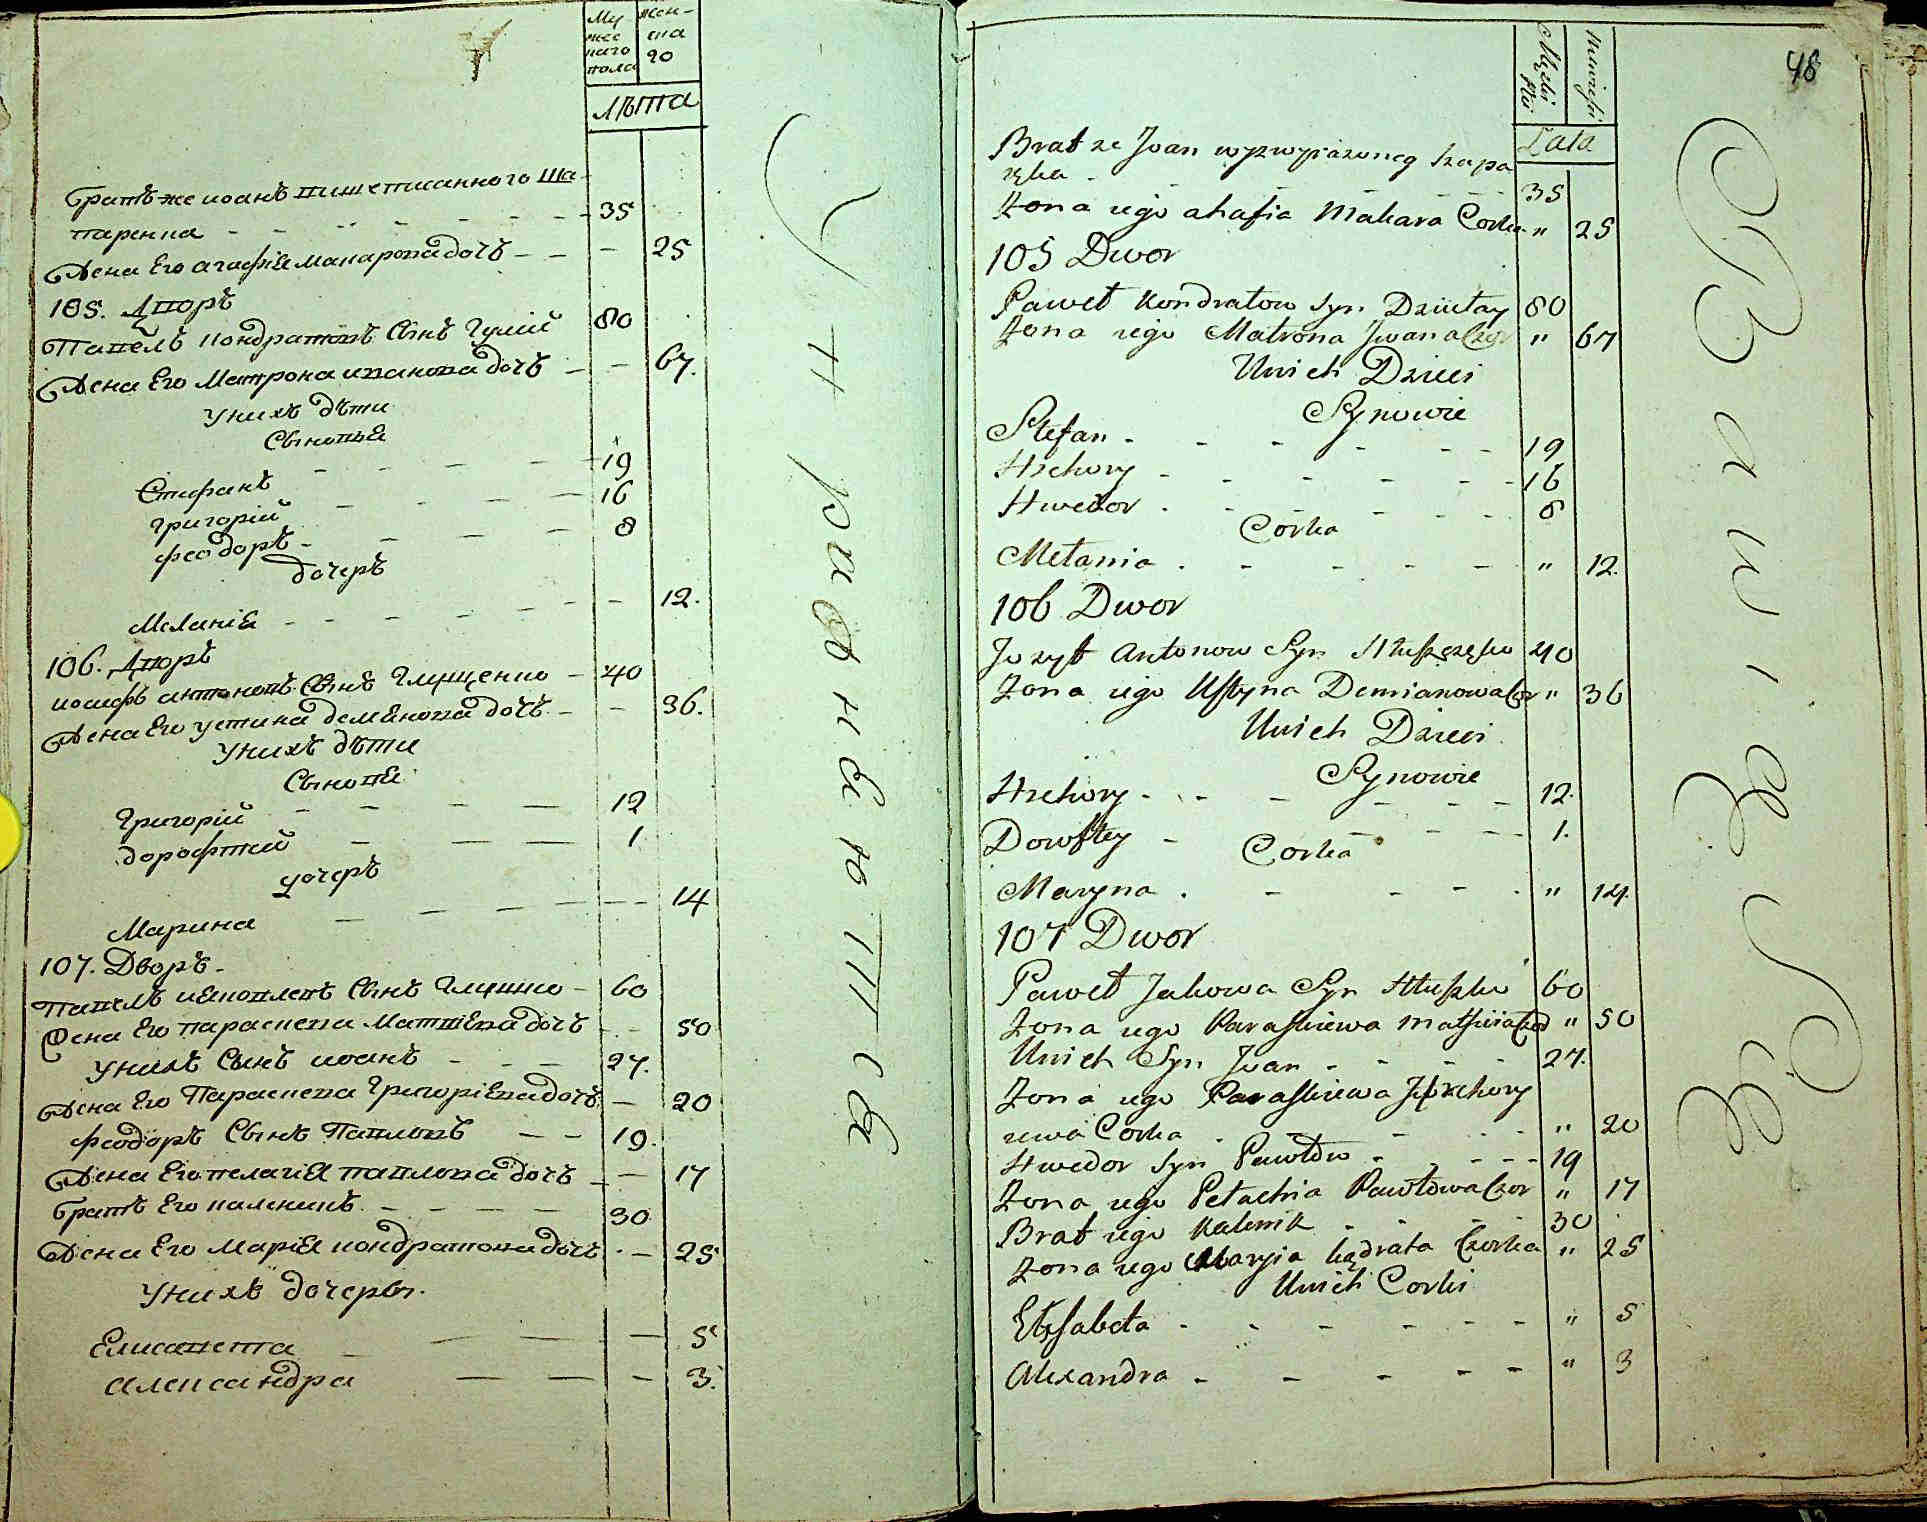 Му
жес
каго
пола
жен-
ска
го
Лѣта
Братъ же иоанъ вишеписанного Ша-
паренка 35
Жена Его агафія макарова дочъ 25
105. Дворъ
Павелъ кондратовъ Сынъ Гулій 80
Жена Его Матрона иванова дочъ 67.
У нихъ дѣти
Сыновья
Стефанъ 19
Григорій 16
Феодоръ 8
дочеръ
Меланія 12.
106. Дворъ
иосифъ антоновъ Сынъ Глущенко 40
Жена Его устина демянова дочъ 36.
У нихъ дѣти
Сыновя
Григорій 12
дорофтей 1
дочеръ
Марина 14
107. Дворъ
Павелъ Сынъ Глушко 60
Жена Его параскева Матвѣева дочъ 50
У нихъ Сынъ иоанъ 27.
Жена Его Параскева Григоріева дочъ 20
Феодоръ Сынъ Павловъ 19.
Жена Его пелагія павлова дочъ 17
Братъ Его каленикъ 30
Жена Его Марія кондратова дочъ 25
У нихъ дочеры.
Елисавета 5
александра 3.
48
Lata
Brat ze Jwan wyzwyrazoneg Szapa
ręka 35
Zona iego ahafia Makara Corka " 25
105 Dwor
Paweł Kondratow Syn 80
Zona iego Matrona Jwana Cor " 67
Unich Dzieci
Synowie
Stefan 19
Hrehory 16
Hwedor 8
Corka
Mełania " 12.
106 Dwor
Jozyf Antonow Syn 40
Zona iego Ustyna Demianowa Cor " 36
Unich Dzieci
Synowie
Hrehory 12.
Dowftey 1.
Corka
Maryna " 14.
107 Dwor
Paweł Jakowa Syn Hłuszko 60
Zona iego Paraskiewa " 50
Unich Syn Jwan 27.
Zona iego Paraskiewa Hrehory
iewa Corka " 20
Hwedor Syn Pawłow 19
Zona iego Pełachia Pawłowa Cor " 17
Brat iego Kalenik 30
Zona iego Maryia kędrata Corka " 25
Unich Corki
Elzsabeta " 5
Alexandra " 3